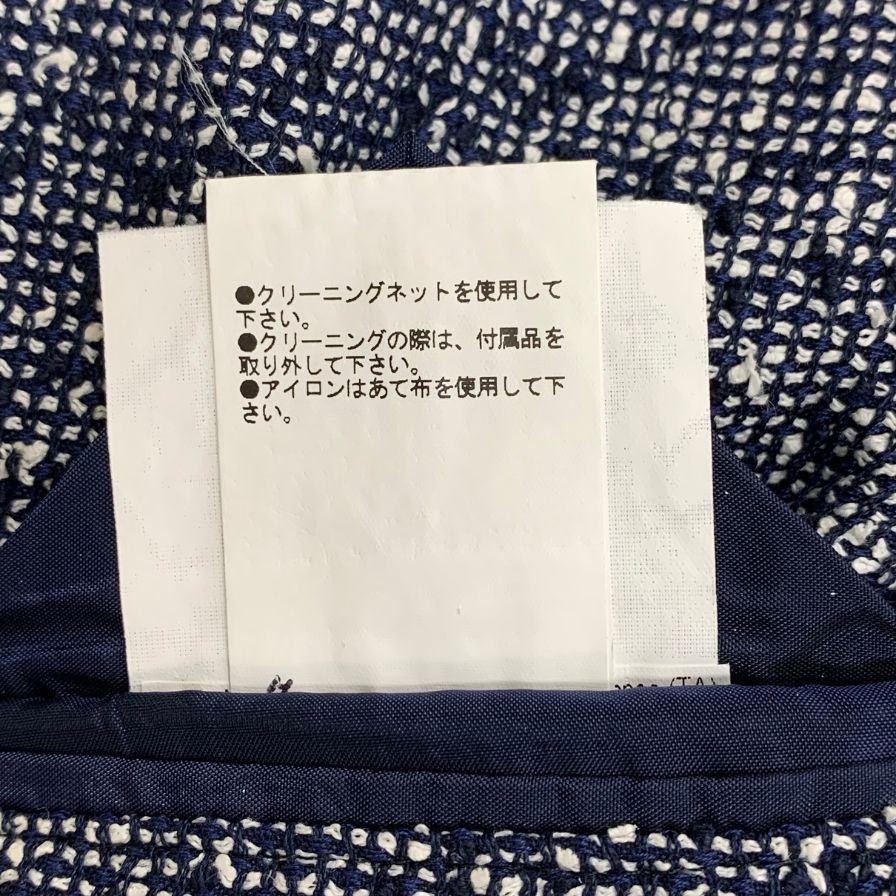 ●クリーニングネットを使用して
下さい。
●クリーニングの際は、付属品を
取り外して下さい。
●アイロンはあて布を使用して下
さい。